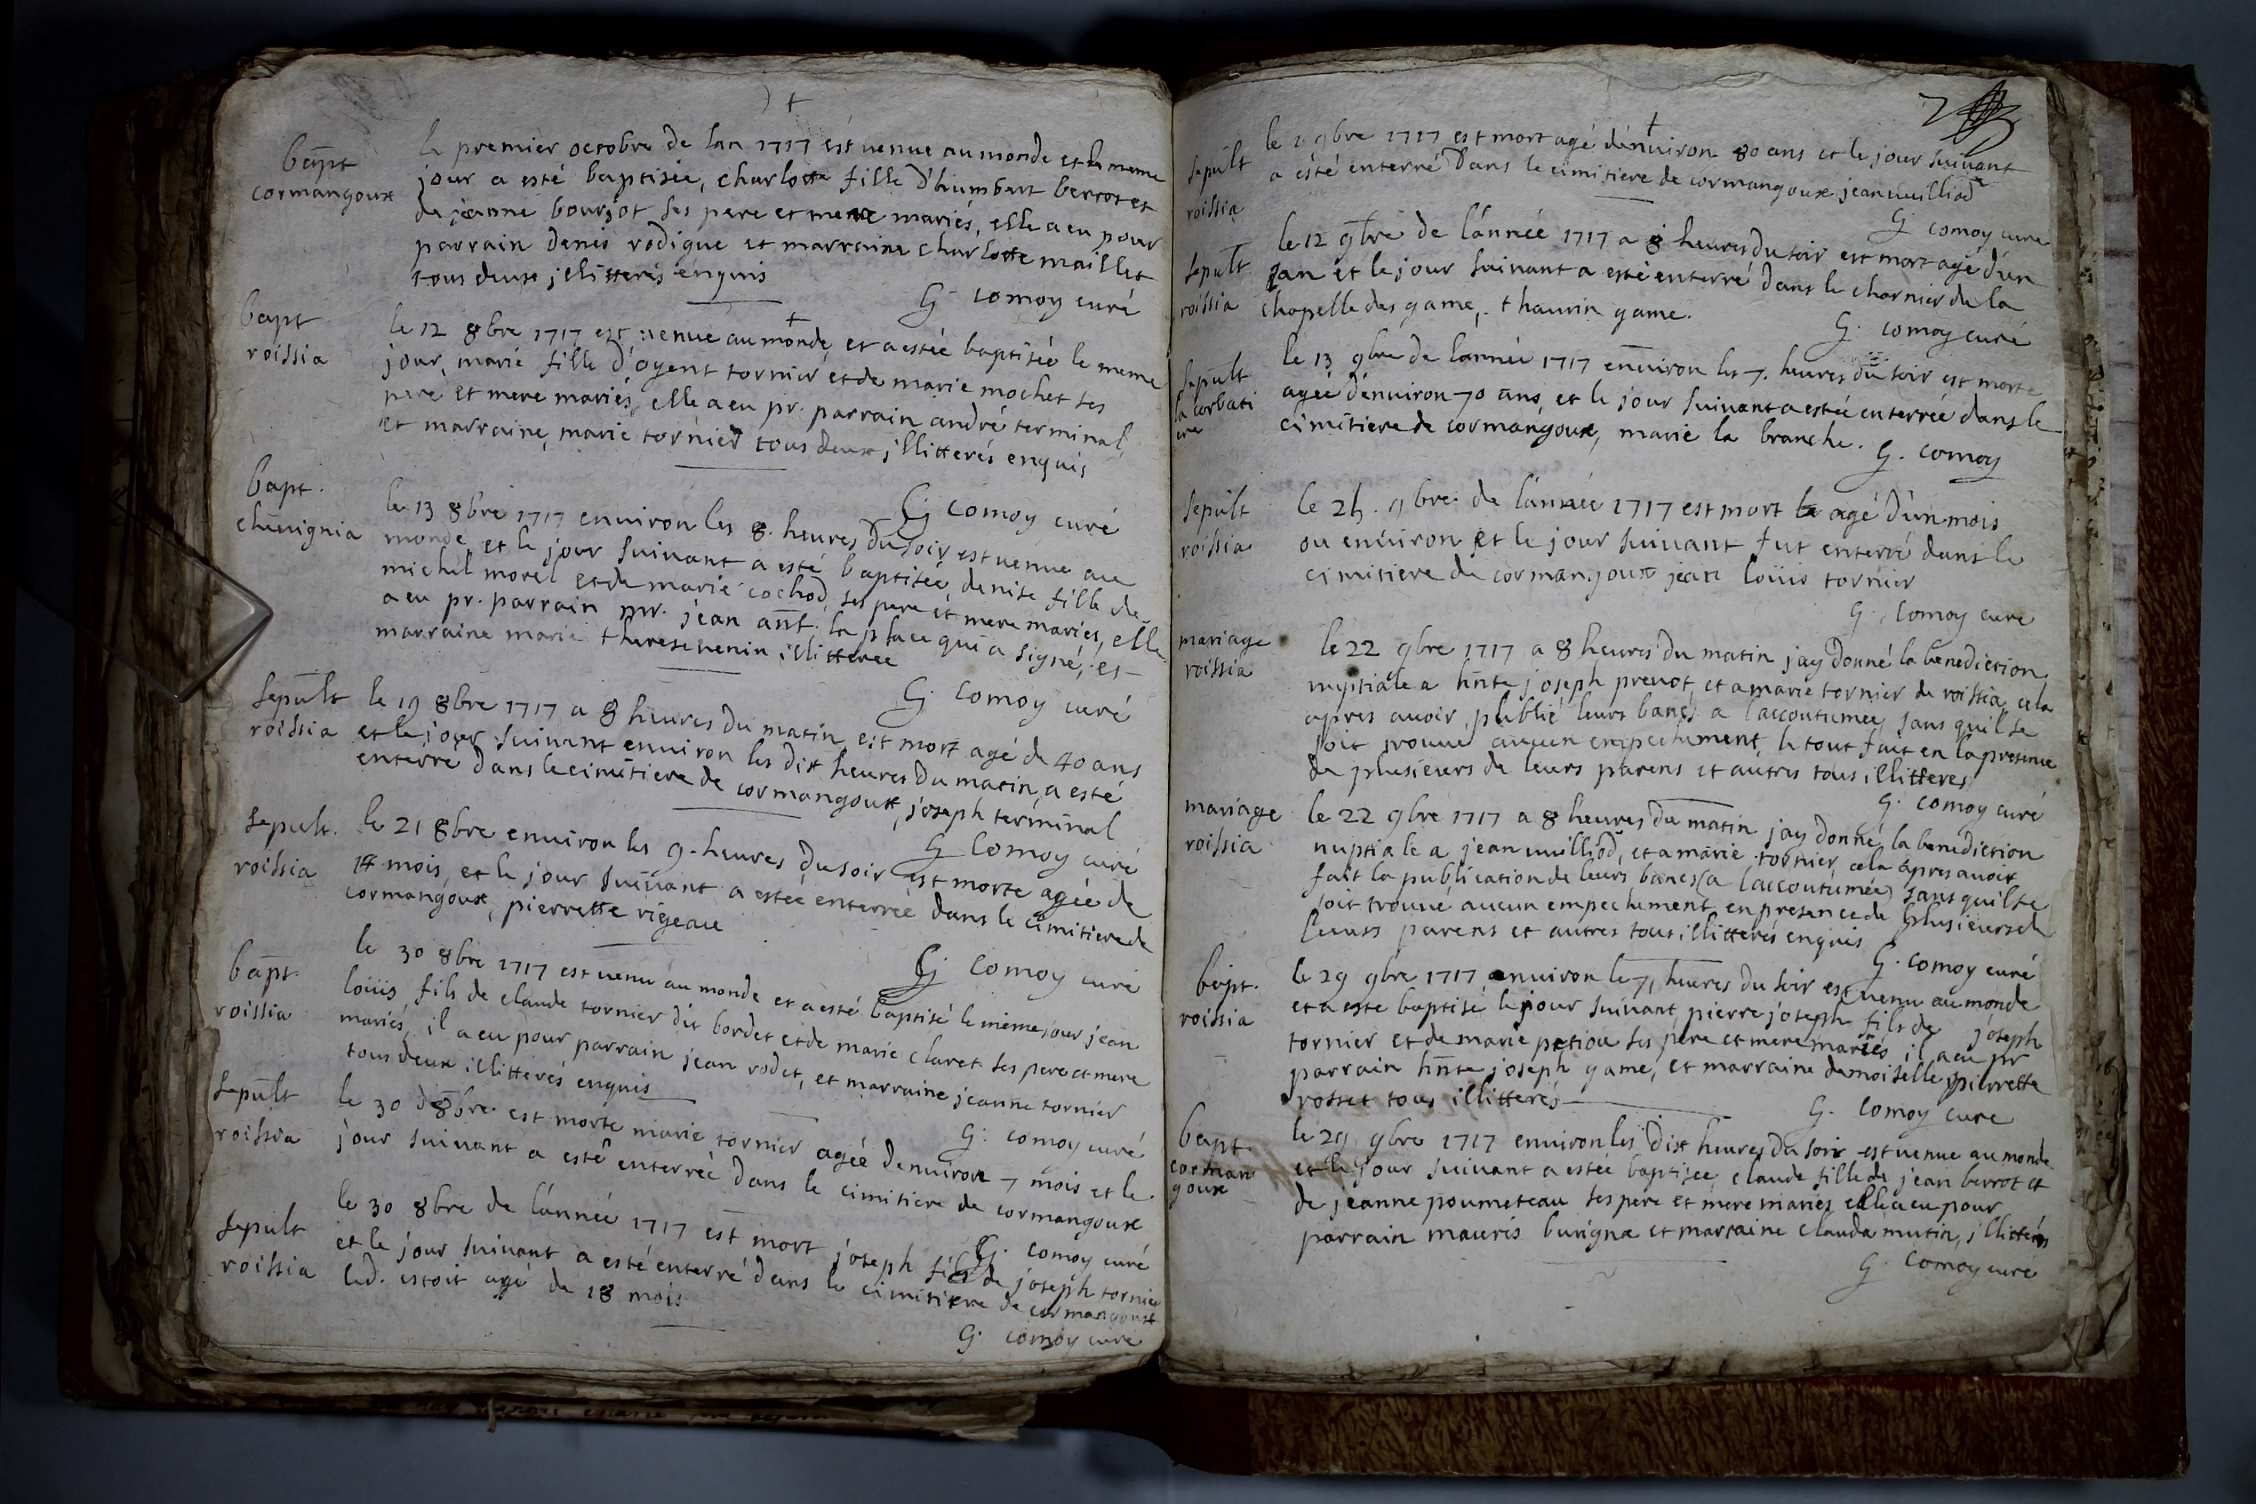 bapt
cormangoux
le premier octobre de lan 1717 est venue au monde et le meme
jour a esté baptisée, charlotte fille d'humbert berrot et
de jeanne bourjot ses pere et mere mariés, elle a eu pour
parrain denis rodique et marraine charlotte maillet
tous deux jllitterés enquis
G. comoy curé
bapt
roissia
le 12 8bre 1717 est venue au monde, et a estée baptisée le meme
jour, marie fille d'oyent tornier et de marie mochet ses
pere et mere mariés, elle a eu pr. parrain andré terminal,
et marraine, marie tornier tous deux jllitterés enquis
G comoy curé
bapt.
chevignia
le 13 8bre 1717 environ les 8. heures du soir est venue au
monde et le jour suivant a esté baptisée, denise fille de
michel morel et de marie cochod, ses pere et mere mariés, elle
a eu pr. parrain mr. jean ant. la place qui a signé, et
marraine marie therese venin illitterée
G. comoy curé
sepult
roissia
le 19 8bre 1717 a 8 heures du matin est mort agé de 40 ans
et le jour suivant environ les dix heures du matin, a esté
enterré dans le cimitiere de cormangoux, joseph terminal
G comoy curé
sepult.
roissia
le 21 8bre environ les 9. heures du soir est morte agée de
mois, et le jour suivant a estée enterrée dans le cimitiere de
cormangoux, pierrette vigeau
G comoy curé
bapt.
roissia
le 30 8bre 1717 est venu au monde et a esté baptisé le même jour jean
loüis, fils de claude tornier dit bordet et de marie claret ses pere et mere
mariés, il a eu pour parrain jean rodet, et marraine jeanne tornier
tous deux illitterés enquis
G. comoy curé
sepult
roissia
le 30 d 8bre est morte marie tornier agée denviron 7 mois et le
jour suivant a esté enterrée dans le cimitiere de cormangoux
G. comoy curé
sepult
roissia
le 30 8bre de l'année 1717 est mort joseph fils de joseph tornier
et le jour suivant a esté enterré dans le cimitiere de cormangoux
led. estoit agé de 18 mois
G. comoy curé
7
sepult
roissia
le 2 9bre 1717 est mort agé d'environ 80 ans et le jour suivant
a ésté enterré dans le cimitiere de cormangoux jean vuilliod
G comoy cure
sepult
roissia
le 12 9bre de l'année 1717 a 8 heures du soir est mort agé d'un
an et le jour suivant a esté enterré dans le charnier de la
chapelle des game, thaurin game.
G. comoy curé
sepult
la corbati
ere
le 13 9bre de lannée 1717 environ les 7. heures du soir est morte
agée d'environ 70 ans, et le jour suivant a estée enterrée dans le
cimitiere de cormangoux, marie la branche.
G. comoy
sepult
roissia
le 25. 9bre de l'année 1717 est mort agé d'un mois
ou environ et le jour suivant fut enterré dans le
cimitiere de cormangoux jean loüis tornier
G. comoy cure
mariage
roissia
le 22 9bre 1717 a 8 heures du matin jay donné la benediction
nuptiale a hnte joseph prevot, et a marie tornier de roissia, cela
apres avoir publié leurs bancs a laccoutumée, sans quil se
soit trouvé aucun empechement, le tout fait en la presence
de plusieurs de leurs parens et autres tous illitteres
G. comoy curé
mariage
roissia
le 22 9bre 1717 a 8 heures du matin jay donné la benediction
nuptiale a jean vuilliod, et a marie tornier, cela apres avoir
fait la publication de leurs bancs (a laccoutumée) sans quil se
soit trouvé aucun empechement, en presence de plusieurs de
leurs parens et autres tous illitterés enquis
G. comoy curé
bapt.
roissia
le 29 9bre 1717 environ le 7, heures du soir est venu au monde
et a esté baptisé le jour suivant pierre joseph fils de joseph
tornier et de marie petiou ses pere et mere mariés, il a eu pr
parrain hnte joseph game, et marraine demoiselle pierrette
rosset tous illitterés
G. comoy cure
bapt.
corman
goux
le 29 9bre 1717 environ les dix heures du soir est venue au monde
et le jour suivant a estée baptisée claude fille de jean berrot et
de jeanne poumeteau ses pere et mere mariés elle a eu pour
parrain mauris burigna et marraine clauda mutin, jllitterés
G. comoy cure